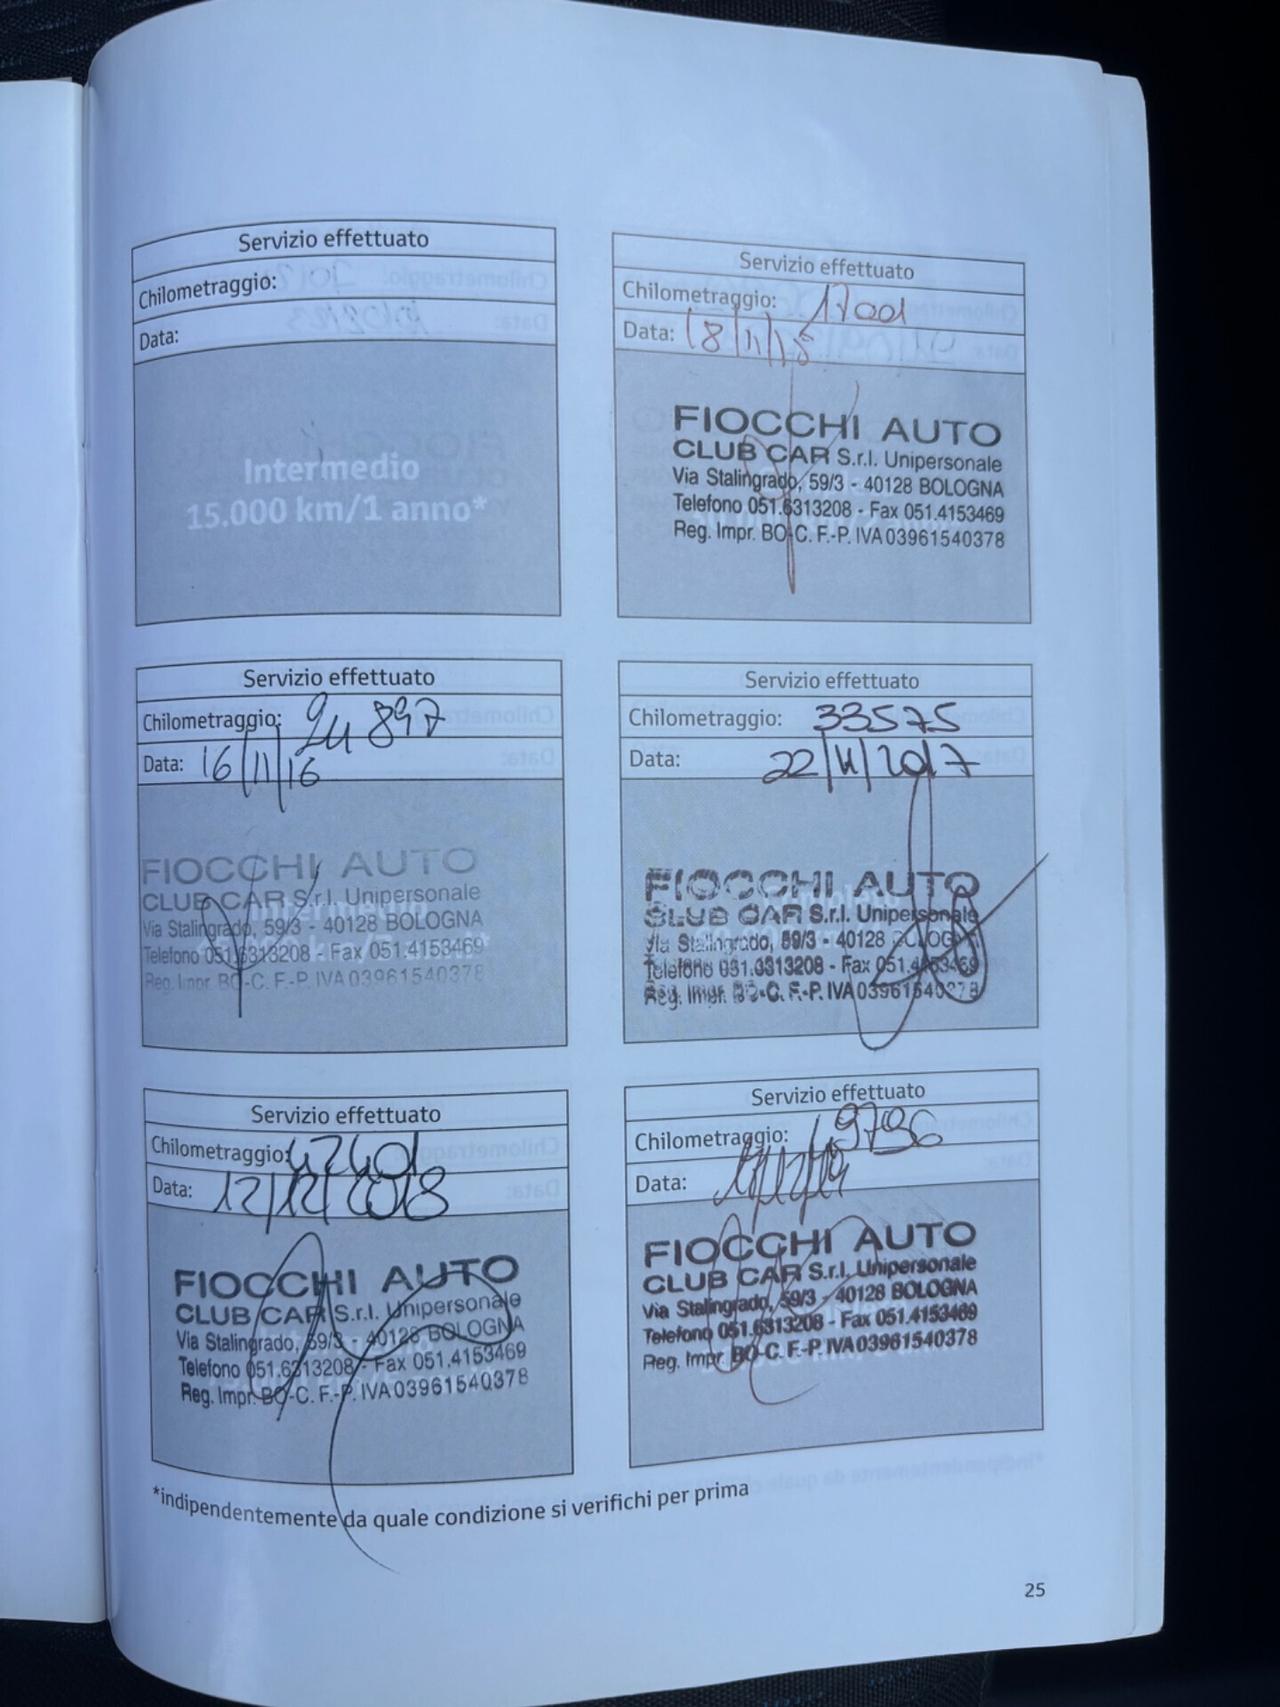 Servizio effettuato
Chilometraggio:
Data:
Intermedio
15.000 km/1 anno*
Servizio effettuato
Chilometraggio: 17001
Data: 18/11/15
FIOCCHI AUTO
CLUB CAR S.r.l. Unipersonale
Via Stalingrado, 59/3 - 40128 BOLOGNA
Telefono 051.6313208 - Fax 051.4153469
Reg. Impr. BO-C. F.-P. IVA 03961540378
Servizio effettuato
Chilometraggio: 24897
Data: 16/11/16
FIOCCHI AUTO
CLUB CAR S.r.l. Unipersonale
Via Stalingrado, 59/3 - 40128 BOLOGNA
Telefono 051.6313208 - Fax 051.4153469
Reg. Impr. BO-C. F.-P. IVA 03961540378
Servizio effettuato
Chilometraggio: 33575
Data: 22/11/2017
FIOCCHI AUTO
CLUB CAR S.r.l. Unipersonale
Via Stalingrado, 59/3 - 40128 BOLOGNA
Telefono 051.6313208 - Fax 051.4153469
Reg. Impr. BO-C. F.-P. IVA 03961540378
Servizio effettuato
Chilometraggio: 42401
Data: 12/12/2018
FIOCCHI AUTO
CLUB CAR S.r.l. Unipersonale
Via Stalingrado, 59/3 - 40128 BOLOGNA
Telefono 051.6313208 - Fax 051.4153469
Reg. Impr. BO-C. F.-P. IVA 03961540378
Servizio effettuato
Chilometraggio:
Data:
FIOCCHI AUTO
CLUB CAR S.r.l. Unipersonale
Via Stalingrado, 59/3 - 40128 BOLOGNA
Telefono 051.6313208 - Fax 051.4153469
Reg. Impr. BO-C. F.-P. IVA 03961540378
*indipendentemente da quale condizione si verifichi per prima
25